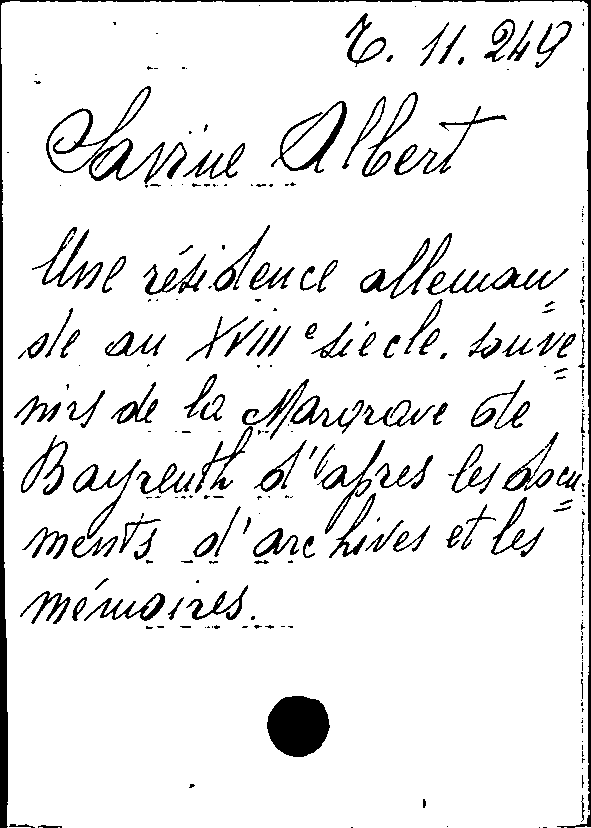 T. 11. 249
Savine Albert
Une résidence alleman=
de au XVIII e siecle. souve=
nirs de la Margrave de
Bayreuth d'apres les docu=
ments d'archives et les
mémoires.